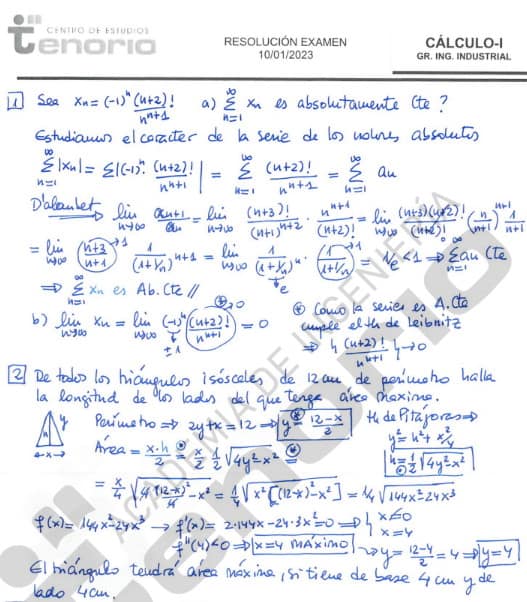 CENTRO DE ESTUDIOS
Tenorio
RESOLUCIÓN EXAMEN
10/01/2023
CÁLCULO-I
GR. ING. INDUSTRIAL
1 Sea xn = (-1)^n (n+2)!/n^(n+1) a) ∑_{n=1}^∞ xn es absolutamente Cte ?
Estudiamos el carácter de la serie de los valores absolutos
∑_{n=1}^∞ |xn| = ∑|(-1)^n · (n+2)!/n^(n+1)| = ∑_{n=1}^∞ (n+2)!/n^(n+1) = ∑_{n=1}^∞ an
D'alambet ⇒ lim_{n→∞} an+1/an = lim_{n→∞} (n+3)!/(n+1)^(n+2) · n^(n+1)/(n+2)! = lim_{n→∞} (n+3)(n+2)!/(n+2)! (n/n+1)^(n+1) 1/n+1
= lim_{n→∞} (n+3/n+1)→1 1/(1+1/n)^(n+1) = lim_{n→∞} 1/(1+1/n)^n · (1/1+1/n)→1 = 1/e < 1 ⇒ ∑_{n=1}^∞ an Cte
→e
⇒ ∑_{n=1}^∞ xn es Ab. Cte //
b) lim_{n→∞} xn = lim_{n→∞} (-1)^n (n+2)!/n^(n+1) →0 = 0
±1
⊛ Como la serie es A. Cte
cumple el th de Leibnitz
⇒ { (n+2)!/n^(n+1) } → 0
2 De todos los triángulos isósceles de 12 cm de perímetro halla
la longitud de los lados del que tenga área máxima.
h y
← x →
Perímetro ⇒ 2y+x = 12 ⇒ y = 12-x/2
th de Pitágoras ⇒
y² = h² + x²/4
h = 1/2 √4y²-x²
Área = x·h/2 = x/2 1/2 √4y²-x² =
= x/4 √4 (12-x)²/4 - x² = 1/4 √x² [(12-x)²-x²] = 1/4 √144x²-24x³
f(x) = 144x²-24x³ → f'(x) = 2·144x-24·3x² = 0 ⇒ { x=0
x=4
f''(4)<0 ⇒ x=4 MÁXIMO ⇒ y = 12-4/2 = 4 ⇒ y=4
El triángulo tendrá área máxima, si tiene de base 4 cm y de
lado 4 cm.
ACADEMIA DE INGENIERÍA
Tenorio